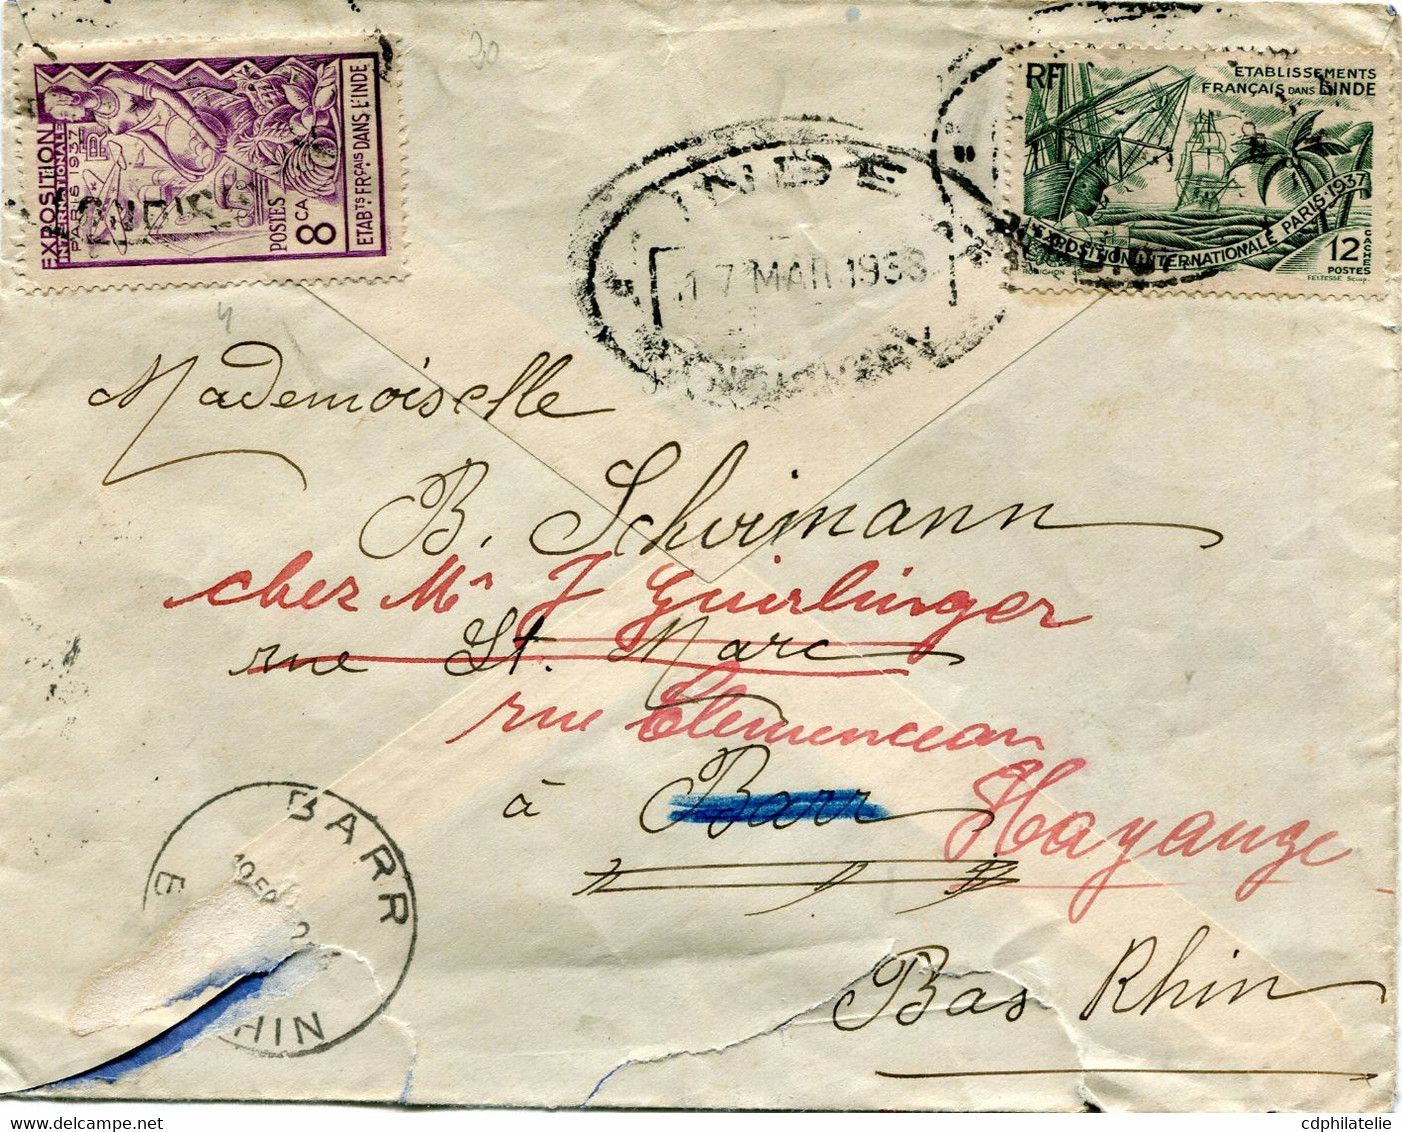 EXPOSITION
INTERNATIONALE
PARIS 1937
RF
POSTES
8 CA
ETABTS FRÇAIS DANS L'INDE
20
INDE
17 MAR 1938
PONDICHERY
RF
ETABLISSEMENTS
FRANÇAIS DANS L'INDE
EXPOSITION INTERNATIONALE PARIS-1937
12
CACHES
POSTES
4
Mademoiselle
B. Schirmann
chez Mr J Guirlinger
rue St. Marc
rue Clemenceau
à Barr Hayange
Bas Rhin
BARR
RHIN
cdphilatelie